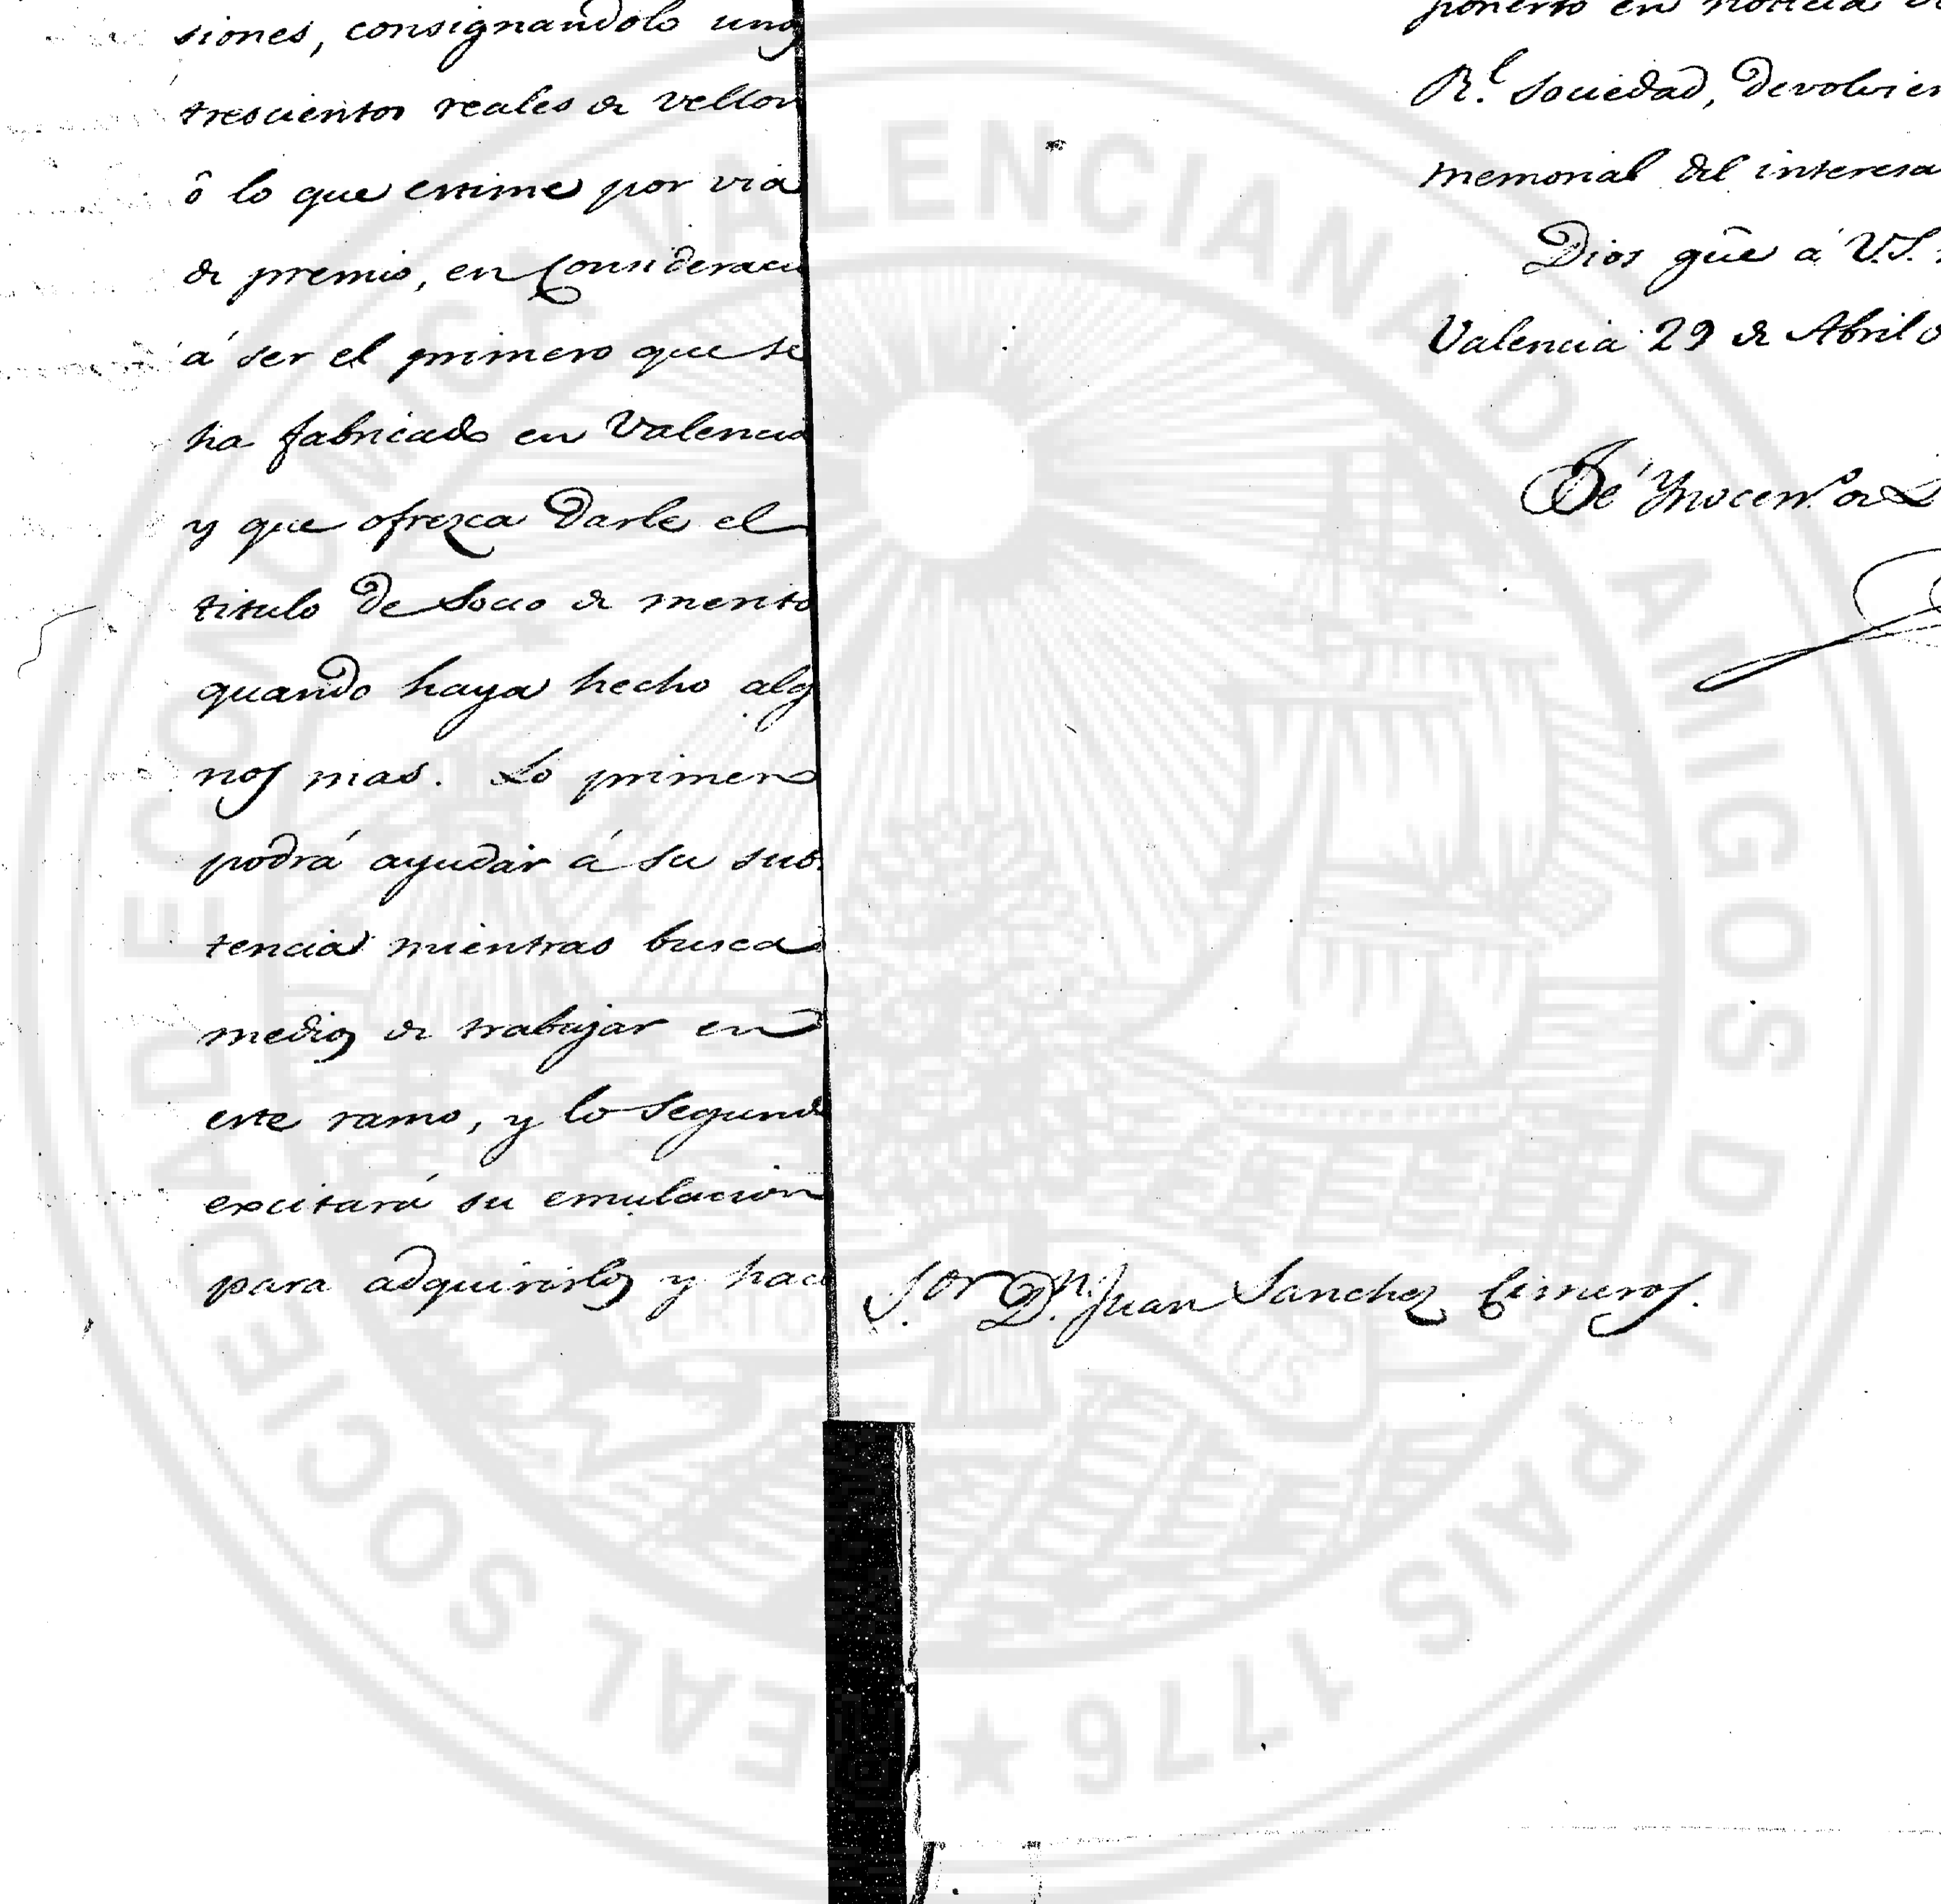 siones, consignandole unos
trescientos reales de vellon
ô lo que estime por via
de premio, en consideraci
á ser el primero que se
ha fabricado en Valencia
y que ofrezca darle el
titulo de Socio de merito
quando haya hecho alg
nos mas. Lo primero
podrá ayudar á su subs
tencia mientras busca
medios de trabajar en
este ramo, y lo segundo
excitará su emulacion
para adquirirlos y hace
ponerlo en noticia de
Rl. Sociedad, devolvien
memorial del interesa
Dios gũe á V.S.
Valencia 29 de Abril d
Sor. Dn. Juan Sanchez Cisneros.
REAL SOCIEDAD ECONÓMICA VALENCIANA DE AMIGOS DEL PAIS 1776